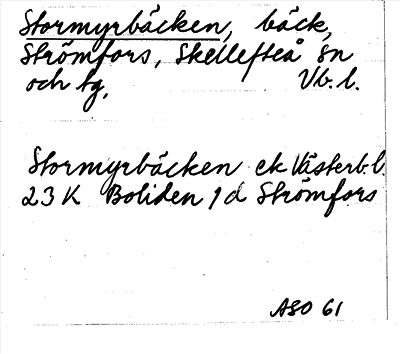 Stormyrbäcken, bäck,
Strömfors, Skellefteå sn
och tg, Vb. l.
Stormyrbäcken ek Västerb. l.
23 K Boliden 1 d Strömfors
ASO 61